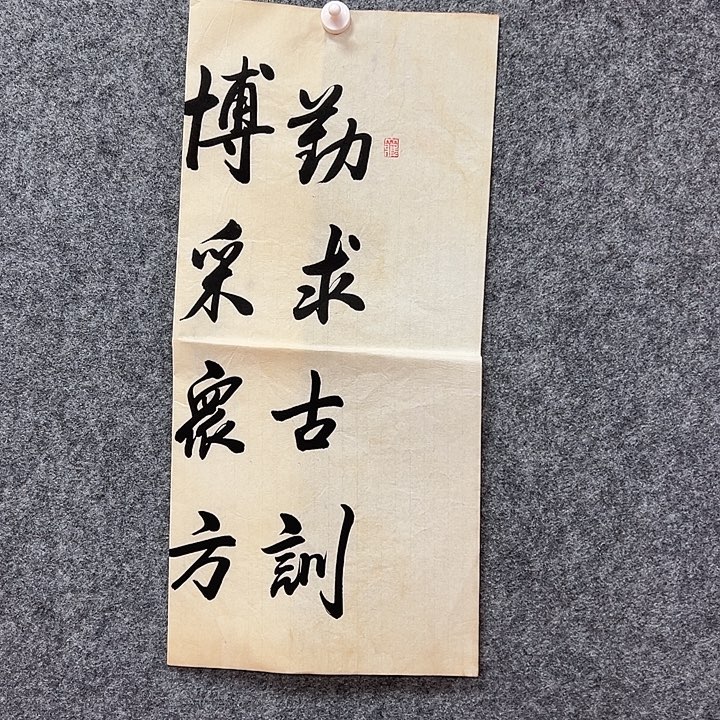 勤求古訓
博采衆方